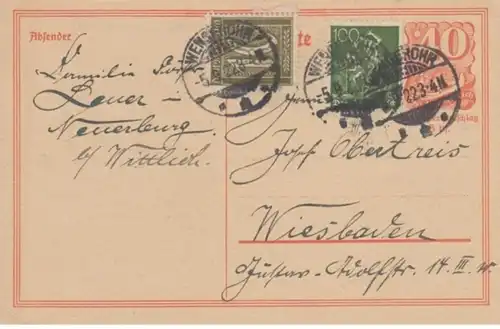 Absender
rte
40
100
WENGEROHR
WENGEROHR
22 3-4 N.
Familie
Lauer -
Neuerburg
b/ Wittlich.
Herrn
Josef Obertreis
Wiesbaden
Gustav-Adolfstr. 14. III. r.